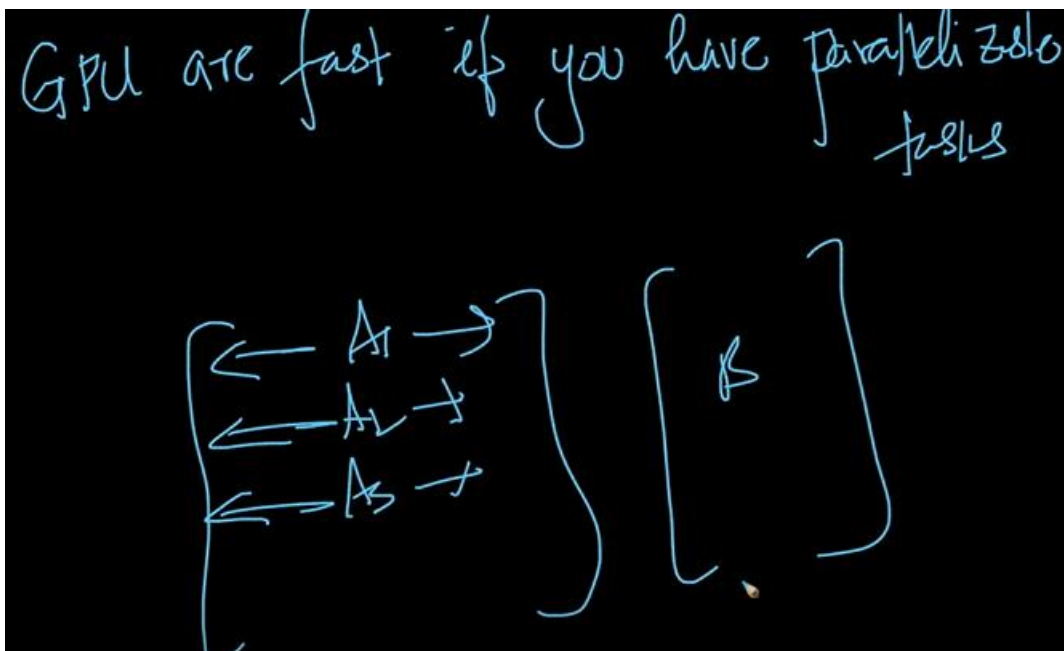 GPU are fast if you have paralelizable
tasks
A1
A2
A3
B